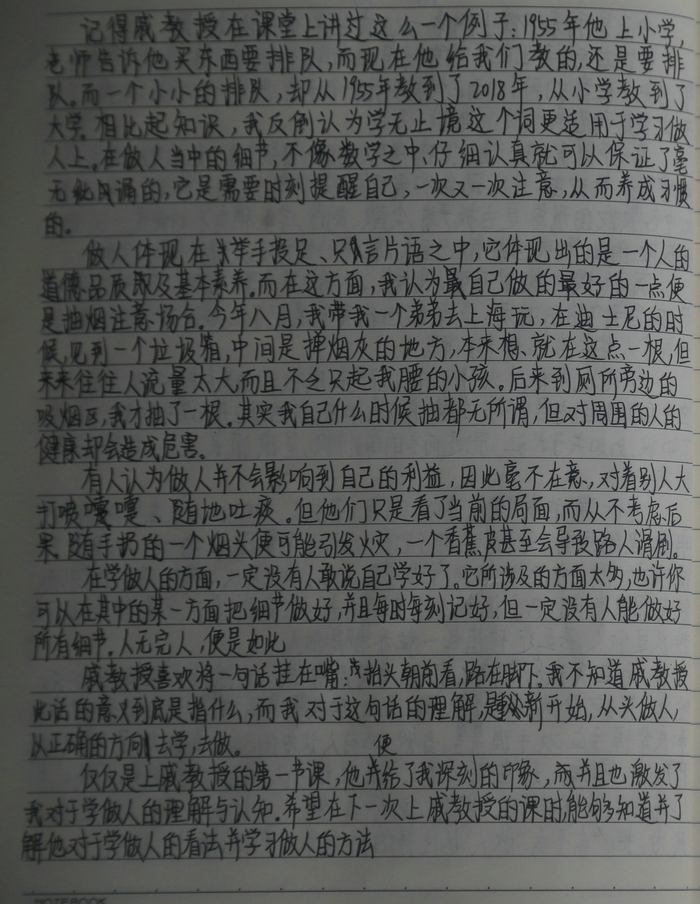 记得戚教授在课堂上讲过这么一个例子：1955年他上小学，
老师告诉他买东西要排队，而现在他给我们教的，还是要排
队。而一个小小的排队，却从1955年教到了2018年，从小学教到了
大学。相比起知识，我反倒认为学无止境这个词更适用于学习做
人上。在做人当中的细节，不像数学之中、仔细认真就可以保证了毫
无纰漏的，它是需要时刻提醒自己，一次又一次注意，从而养成习惯
的。
做人体现在举手投足、只言片语之中，它体现出的是一个人的
道德品质以及基本素养。而在这方面，我认为最自己做的最好的一点便
是抽烟注意场合。今年八月，我带我一个弟弟去上海玩，在迪士尼的时
候，见到一个垃圾箱，中间是掸烟灰的地方，本来想、就在这点一根，但
来来往往人流量太大，而且不乏只起我腰的小孩。后来到厕所旁边的
吸烟区，我才抽了一根。其实我自己什么时候抽都无所谓，但对周围的人的
健康却会造成危害。
有人认为做人并不会影响到自己的利益，因此毫不在意，对着别人大
打喷嚏、随地吐痰。但他们只是看了当前的局面，而从不考虑后
果。随手扔的一个烟头便可能引发火灾，一个香蕉皮甚至会导致路人滑倒。
在学做人的方面，一定没有人敢说自己学好了。它所涉及的方面太多，也许你
可以在其中的某一方面把细节做好，并且每时每刻记好，但一定没有人能做好
所有细节。人无完人，便是如此
戚教授喜欢将一句话挂在嘴：抬头朝前看，路在脚下。我不知道戚教授
此话的意义到底是指什么，而我对于这句话的理解，是重新开始，从头做人，
从正确的方向去学，去做。
便
仅仅是上戚教授的第一节课，他并给了我深刻的印象，并且也激发了
我对于学做人的理解与认知。希望在下一次上戚教授的课时，能够知道并了
解他对于学做人的看法并学习做人的方法
NOTEBOOK